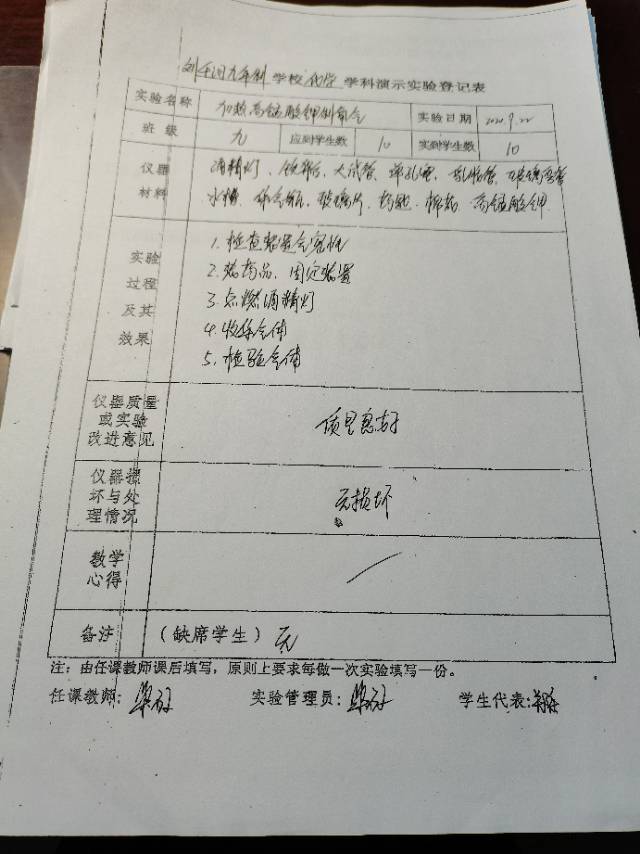 九年制 学校 化学 学科演示实验登记表
实验名称 加热高锰酸钾制氧气 实验日期 2020.9.22
班级 九 应到学生数 10 实到学生数 10
仪器 酒精灯、铁架台、大试管、单孔塞、乳胶管、玻璃导管
材料 水槽、集气瓶、玻璃片、药匙、棉花、高锰酸钾
1. 检查装置气密性
实验 2. 装药品、固定装置
过程
及其 3. 点燃酒精灯
效果 4. 收集气体
5. 检验气体
仪器质量
或实验 质量良好
改进意见
仪器损
坏与处 无损坏
理情况
教学
心得
备注 (缺席学生) 无
注：由任课教师课后填写，原则上要求每做一次实验填写一份。
任课教师： 实验管理员： 学生代表：